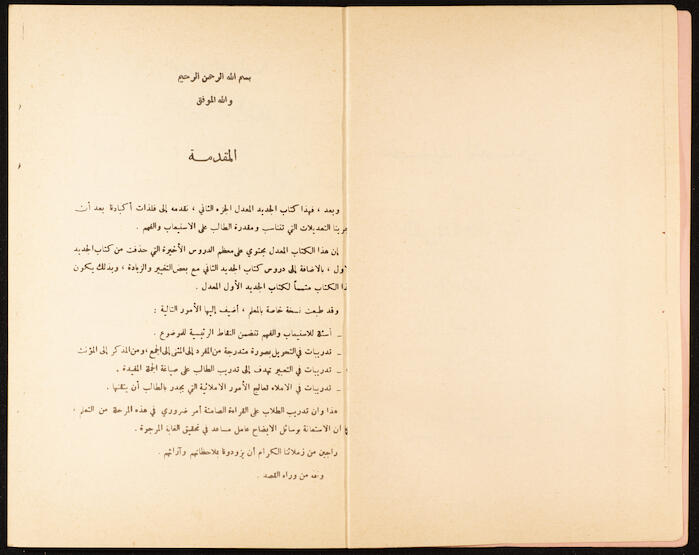 بسم الله الرحمن الرحيم
والله الموفق
المقدمة
وبعد ، فهذا كتاب الجديد المعدل الجزء الثاني ، نقدمه إلى فلذات أكبادنا بعد أن
جرينا التعديلات التي تتناسب ومقدرة الطالب على الاستيعاب والفهم .
إن هذا الكتاب المعدل يحتوي على معظم الدروس الأخيرة التي حذفت من كتاب الجديد
لأول ، بالاضافة إلى دروس كتاب الجديد الثاني مع بعض التغيير والزيادة ، وبذلك يكون
ذا الكتاب متمماً لكتاب الجديد الأول المعدل .
وقد طبعت نسخة خاصة بالمعلم ، أضيف إليها الأمور التالية :
ـ أسئلة للاستيعاب والفهم تتضمن النقاط الرئيسية للموضوع .
ـ تدريبات في التحويل بصورة متدرجة من المفرد إلى المثنى إلى الجمع ، ومن المذكر إلى المؤنث
ـ تدريبات في التعبير تهدف إلى تدريب الطالب على صياغة الجملة المفيدة .
ـ تدريبات في الاملاء تعالج الأمور الاملائية التي يجدر بالطالب أن يتقنها .
هذا وان تدريب الطلاب على القراءة الصامتة أمر ضروري في هذه المرحلة من التعلم ،
ان الاستعانة بوسائل الايضاح عامل مساعد في تحقيق الغاية المرجوة .
راجين من زملائنا الكرام أن يزودونا بملاحظاتهم وآرائهم .
والله من وراء القصد .